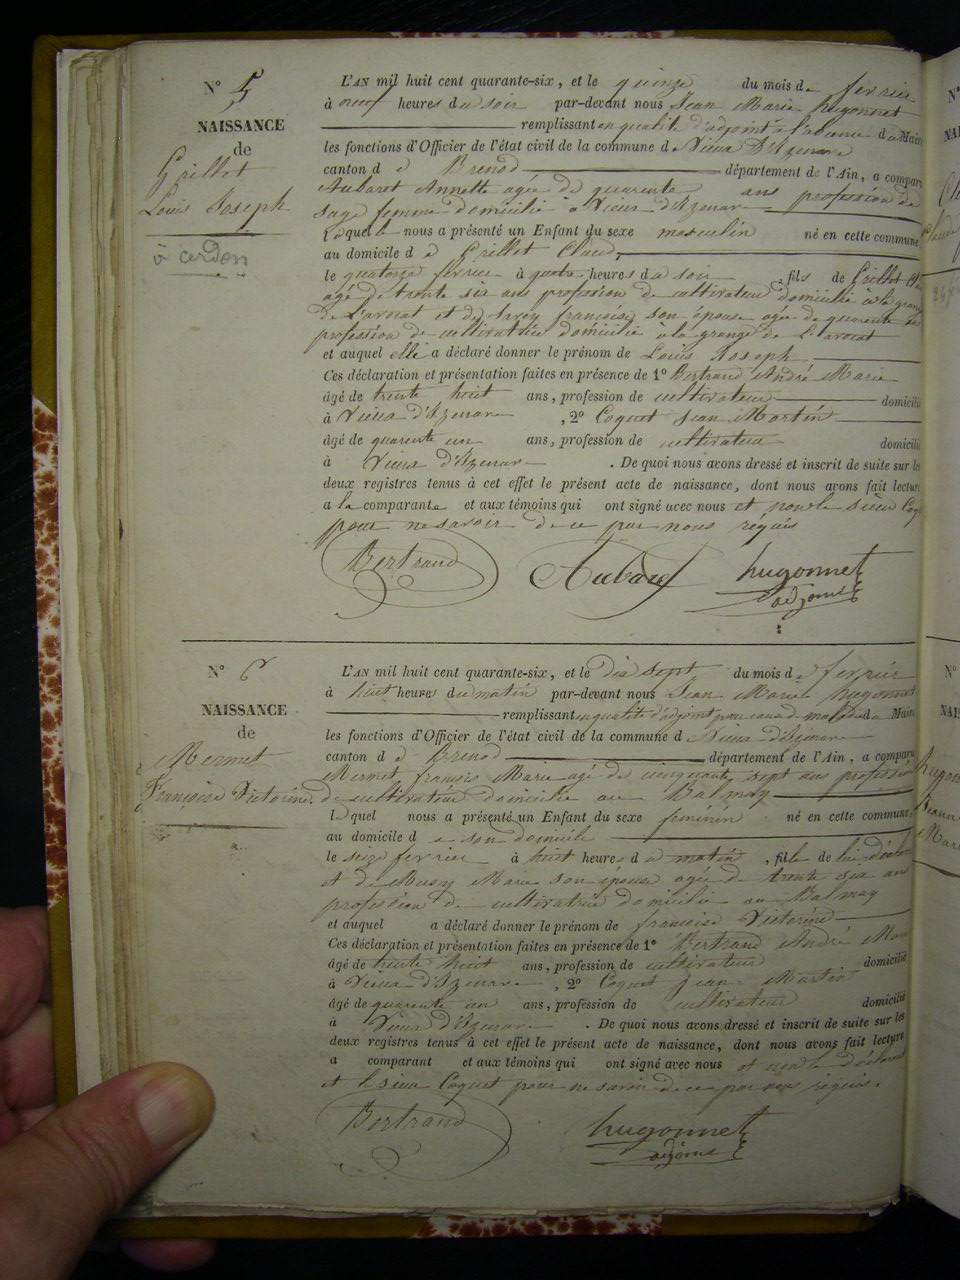 N° 5
NAISSANCE
de
Grillet
Louis Joseph
à cerdon
L'AN mil huit cent quarante-six, et le quinze du mois de fevrier
à neuf heures du soir par-devant nous Jean Marie hugonnet
remplissant en qualité d'adjoint à l'absence du Maire
les fonctions d'Officier de l'état civil de la commune de Vieux D'Izenave
canton d e Brenod département de l'Ain, a comparu
Aubaret Annette agée de quarente ans profession de
sage femme domicilié à Vieux d'Izenave
laquelle nous a présenté un Enfant du sexe masculin né en cette commune
au domicile d e Grillet Claude
le quatorze fevrier à quatre heures du soir, fils de Grillet Cl
agé de trente six ans profession de cultivateur domicilié à la grange
de L'avocat et de Savey françoise son épouse agée de quarente
profession de cultivatrice domicilié à la grange de L'avocat
et auquel elle a déclaré donner le prénom de Louis Joseph
Ces déclaration et présentation faites en présence de 1° Bertrand André Marie
âgé de trente huit ans, profession de cultivateur domicilié
à Vieux d'Izenave, 2° Coquet Jean Martin
âgé de quarente un ans, profession de cultivateur domicilié
à Vieux d'Izenave. De quoi nous avons dressé et inscrit de suite sur les
deux registres tenus à cet effet le présent acte de naissance, dont nous avons fait lecture
a la comparante et aux témoins qui ont signé avec nous et non le sieur Coq
pour ne savoir de ce par nous requis
Bertrand Aubaret hugonnet
adjoint
N° 6
NAISSANCE
de
Mermet
Françoise Victorine
L'AN mil huit cent quarante-six, et le dix sept du mois d e fevrier
à huit heures du matin par-devant nous Jean Marie hugonnet
remplissant en qualité d'adjoint pour cause de maladie du Maire
les fonctions d'Officier de l'état civil de la commune d Vieux d'Izenave
canton d e Brenod département de l'Ain, a comparu
Mermet françois Marie agé de cinquante sept ans profession
de cultivateur domicilié au Balmay
lequel nous a présenté un Enfant du sexe féminin né en cette commune,
au domicile d e son domicile
le seize fevrier à huit heures du matin, fille de lui déclarant
et de Musy Marie son épouse agée de trente six ans
profession de cultivatrice domicilié au Balmay
et auquel a déclaré donner le prénom de françoise Victorine
Ces déclaration et présentation faites en présence de 1° Bertrand André Marie
âgé de trente huit ans, profession de cultivateur domicilié
à Vieux d'Izenave, 2° Coquet jean Martin
âgé de quarente un ans, profession de cultivateur domicilié
à Vieux d'Izenave. De quoi nous avons dressé et inscrit de suite sur les
deux registres tenus à cet effet le présent acte de naissance, dont nous avons fait lecture
a comparant et aux témoins qui ont signé avec nous et non le déclarant
et le sieur Coquet pour ne savoir de ce par nous requis.
Bertrand hugonnet
adjoint